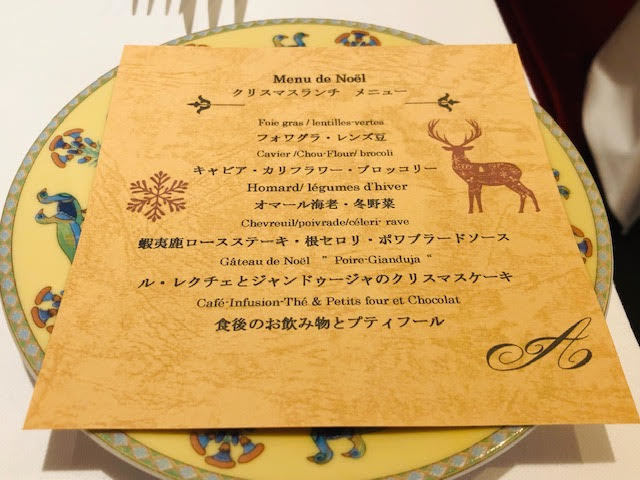 Menu de Noël
クリスマスランチ メニュー
Foie gras / lentilles-vertes
フォワグラ・レンズ豆
Cavier /Chou-Flour/ brocoli
キャビア・カリフラワー・ブロッコリー
Homard/ légumes d'hiver
オマール海老・冬野菜
Chevreuil/poivrade/céleri- rave
蝦夷鹿ロースステーキ・根セロリ・ポワブラードソース
Gâteau de Noël " Poire-Gianduja "
ル・レクチェとジャンドゥージャのクリスマスケーキ
Café-Infusion-Thé & Petits four et Chocolat
食後のお飲み物とプティフール
A